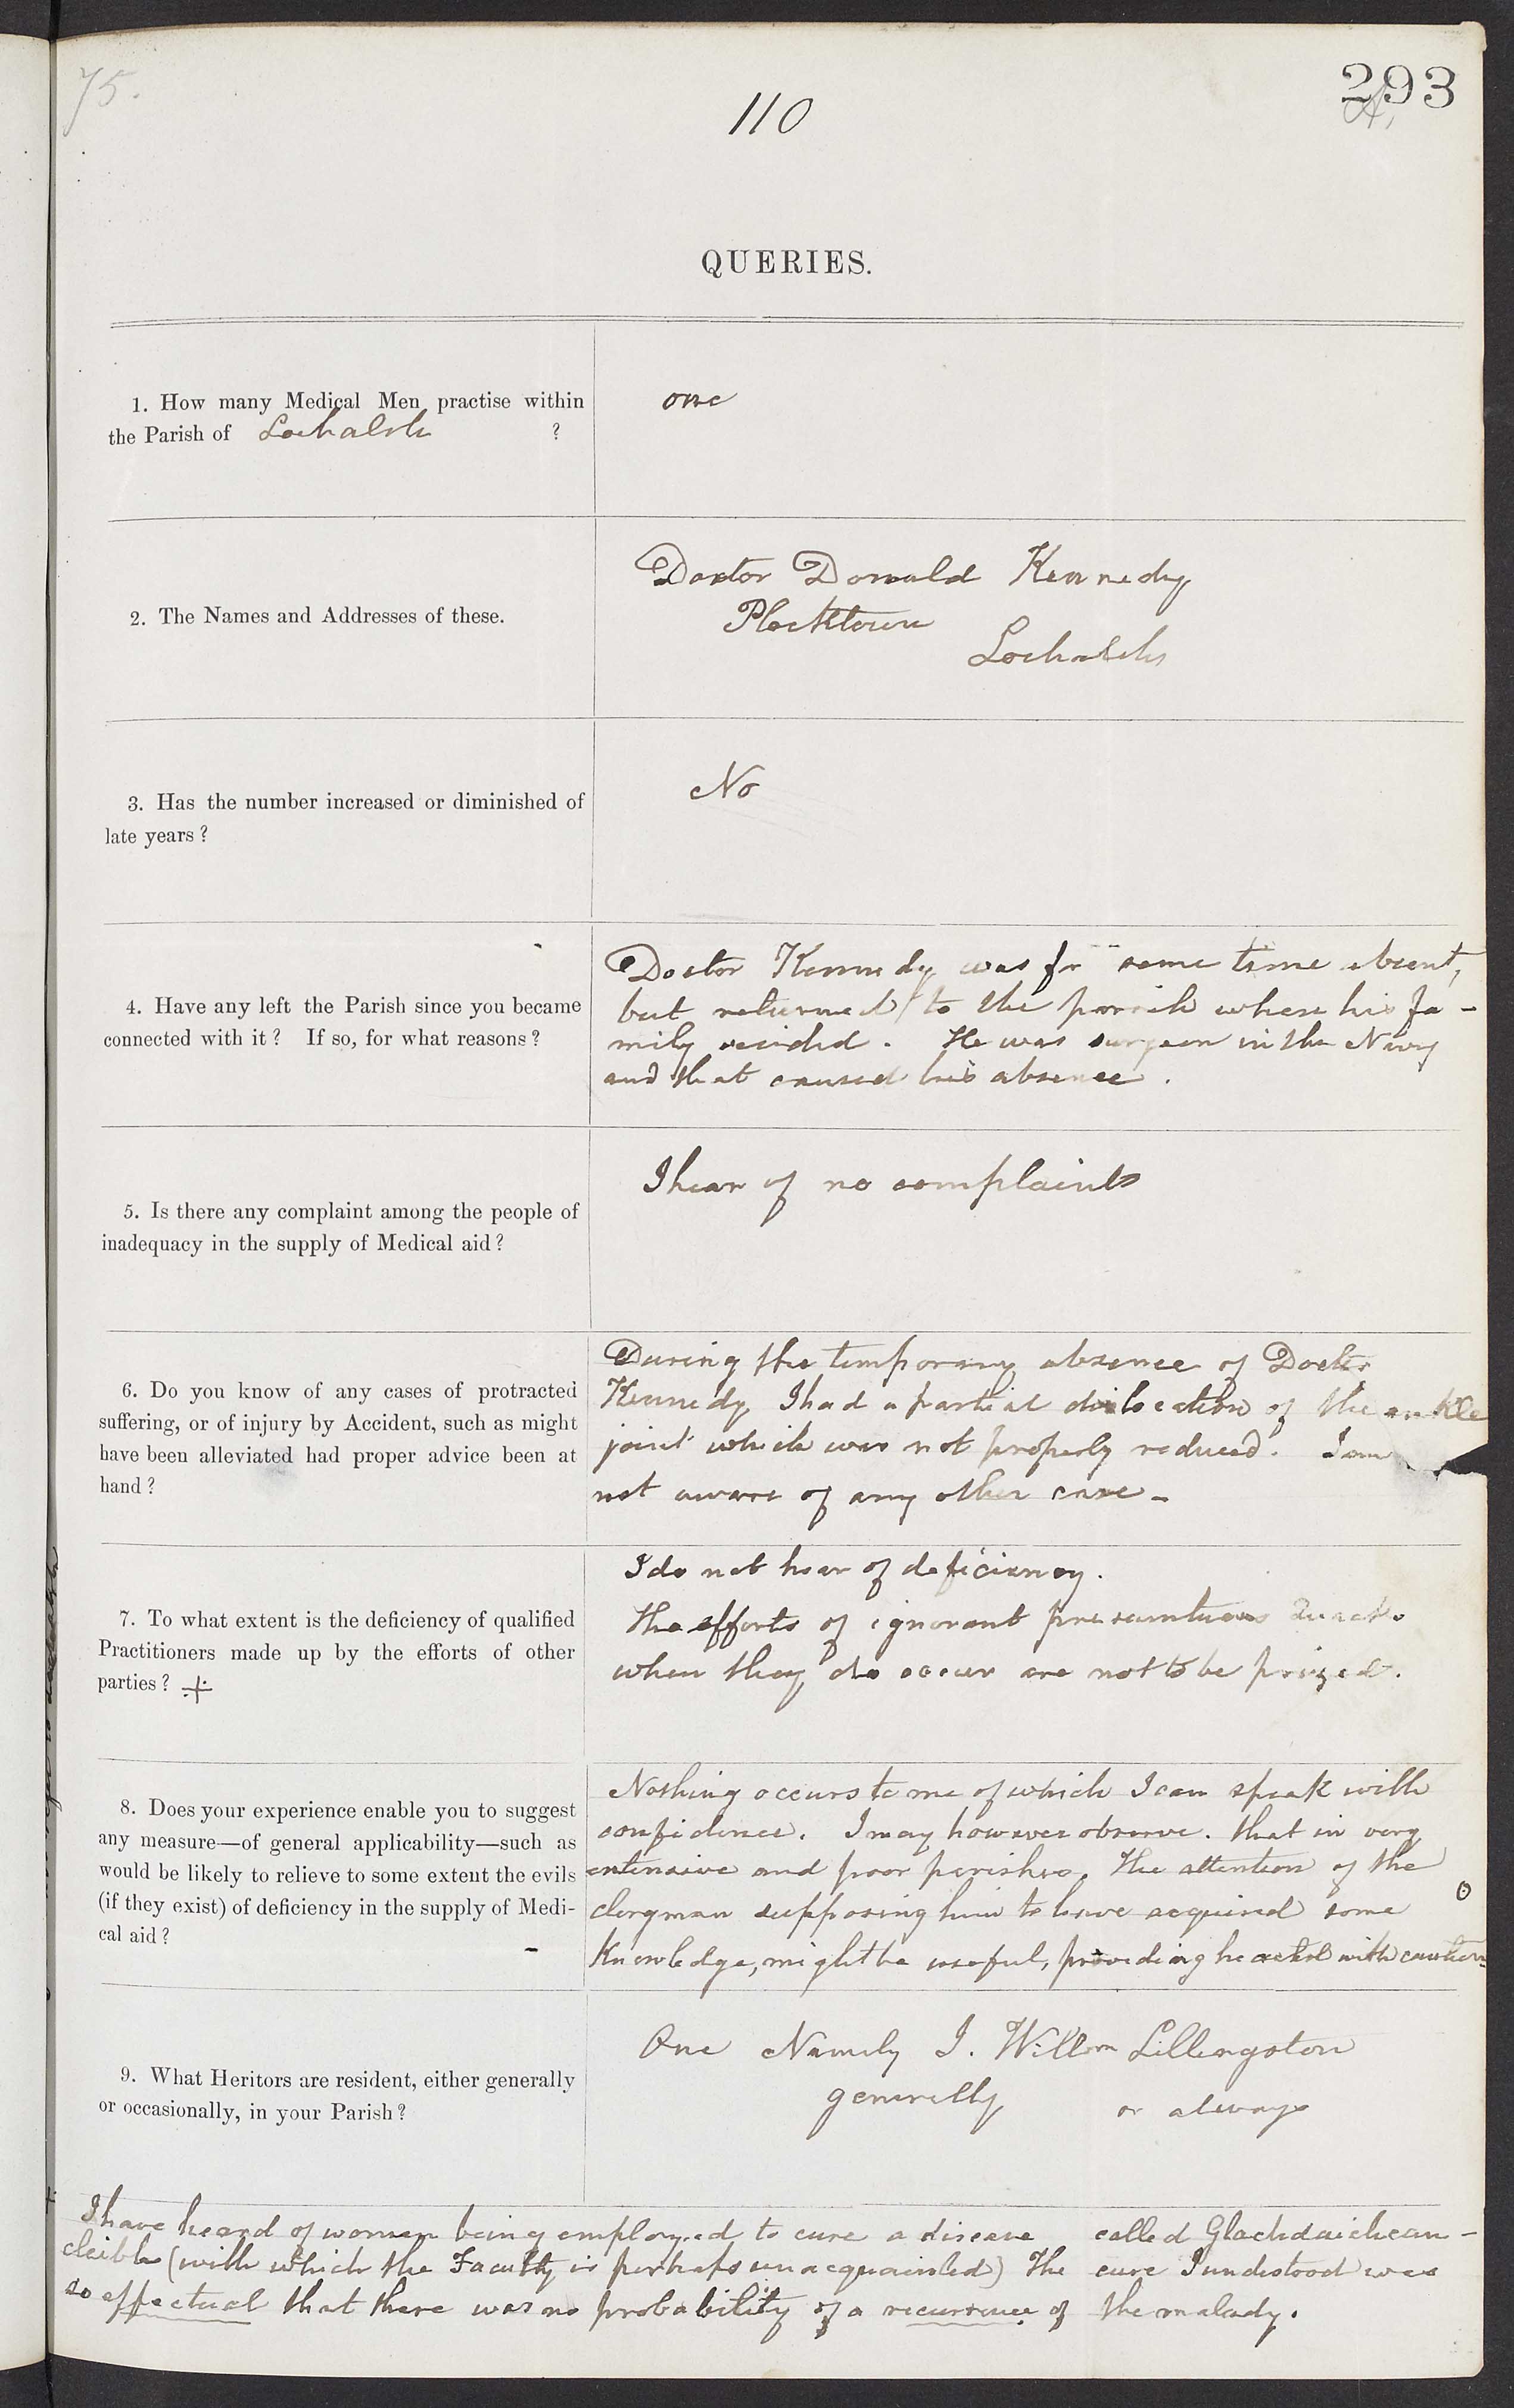 75.
110
293
QUERIES.
1. How many Medical Men practise within
the Parish of Lochalsh ?
one
2. The Names and Addresses of these.
Doctor Donald Kennedy
Plocktown
Lochalsh
3. Has the number increased or diminished of
late years?
No
4. Have any left the Parish since you became
connected with it? If so, for what reasons?
Doctor Kennedy was for some time absent,
but returned to the parish where his fa-
mily resided. He was surgeon in the Navy
and that caused his absence.
5. Is there any complaint among the people of
inadequacy in the supply of Medical aid?
I hear of no complaints
6. Do you know of any cases of protracted
suffering, or of injury by Accident, such as might
have been alleviated had proper advice been at
hand?
During the temporary absence of Doctor
Kennedy I had a partial dislocation of the ankle
joint which was not properly reduced. I am
not aware of any other case -
7. To what extent is the deficiency of qualified
Practitioners made up by the efforts of other
parties? +
I do not hear of deficiency.
The efforts of ignorant presumtuous Quacks
when they do occur are not to be prized.
8. Does your experience enable you to suggest
any measure—of general applicability—such as
would be likely to relieve to some extent the evils
(if they exist) of deficiency in the supply of Medi-
cal aid?
Nothing occurs to me of which I can speak with
confidence. I may however observe. that in very
extensive and poor parishes, the attention of the
clergman supposing him to have acquired some
Knowledge, might be useful, providing he acted with caution
9. What Heritors are resident, either generally
or occasionally, in your Parish?
One Namely I. Willm Lillingston
generally or always
I have heard of women being employed to cure a disease called Glachdaichean-
cleibhe (with which the Faculty is perhaps unacquainted) The cure I understood was
so effectual that there was no probability of a recurrence of the malady.